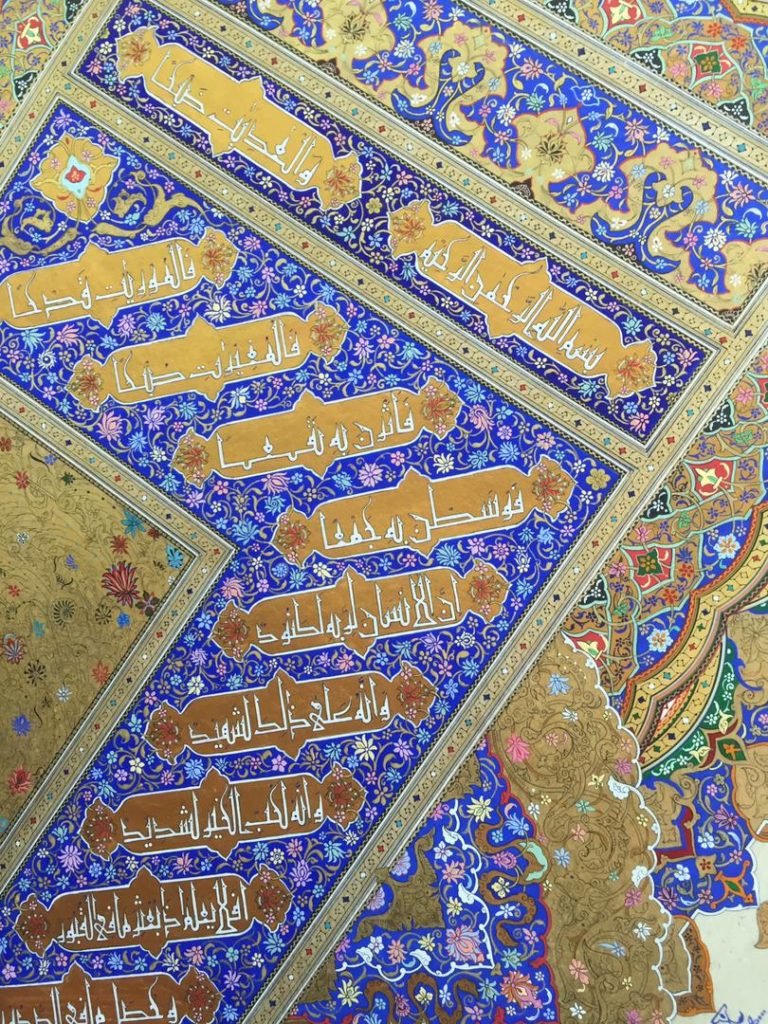 بسم الله الرحمن الرحيم
والعديت ضبحا
فالموريت قدحا
فالمغيرت صبحا
فأثرن به نقعا
فوسطن به جمعا
ان الانسان لربه لكنود
وانه على ذلك لشهيد
وانه لحب الخير لشديد
افلا يعلم اذا بعثر ما في القبور
وحصل ما في الصدور